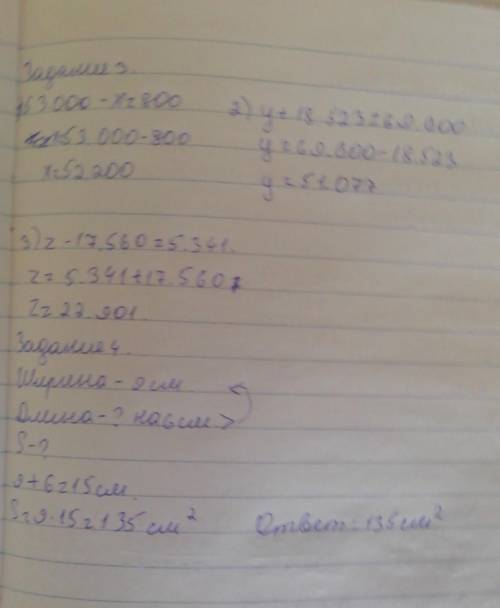 Задание 3.
53.000-x=800
x=53.000-800
x=52.200
2) y+18.523=69.600
y=69.600-18.523
y=51.077
3) z-17.560=5.341.
z=5.341+17.560
z=22.901
Задание 4.
Ширина-9см
Длина-? на 6см >
S-?
9+6=15см.
S=9·15=135см²
Ответ: 135см²